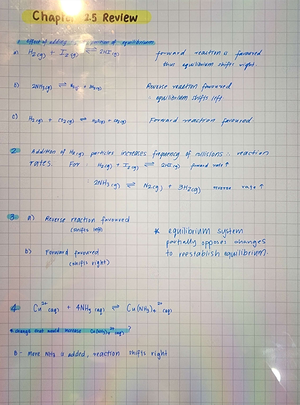 Chapter 2.5 Review
1. Effect of adding H2(g) position of equilibrium
a) H2(g) + I2(g) ⇌ 2HI(g) forward reaction is favoured
thus equilibrium shifts right.
b) 2NH3(g) ⇌ N2(g) + 3H2(g) Reverse reaction favoured
∴ equilibrium shifts left
c) H2(g) + CO2(g) ⇌ H2O(g) + CO(g) Forward reaction favoured.
2. Addition of H2(g) particles increases frequency of collisions ∴ reaction
rates. For : H2(g) + I2(g) ⇌ 2HI(g) forward rate ↑
: 2NH3(g) ⇌ N2(g) + 3H2(g) reverse rate ↑
3 a) Reverse reaction favoured
(shifts left)
* equilibrium system
partially opposes changes
to reestablish equilibrium.
b) Forward favoured
(shifts right)
4. Cu2+(aq) + 4NH3(aq) ⇌ Cu(NH3)4 2+(aq)
* change that would increase Cu(NH3)4 2+(aq) ?
B - More NH3 is added, reaction shifts right